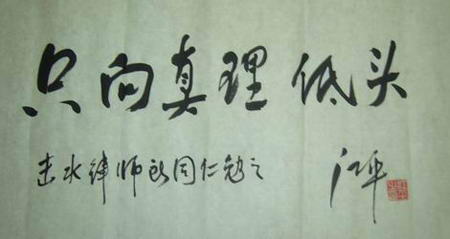 只向真理低头
击水律师所同仁勉之
江平